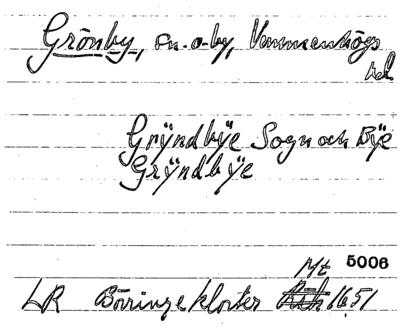 Grönby, sn. o. by, Vemmenhögs
hd
Grÿndbÿe Sogn och Bÿe
Grÿndbÿe
Mt 5006
LR Börringe kloster 1651